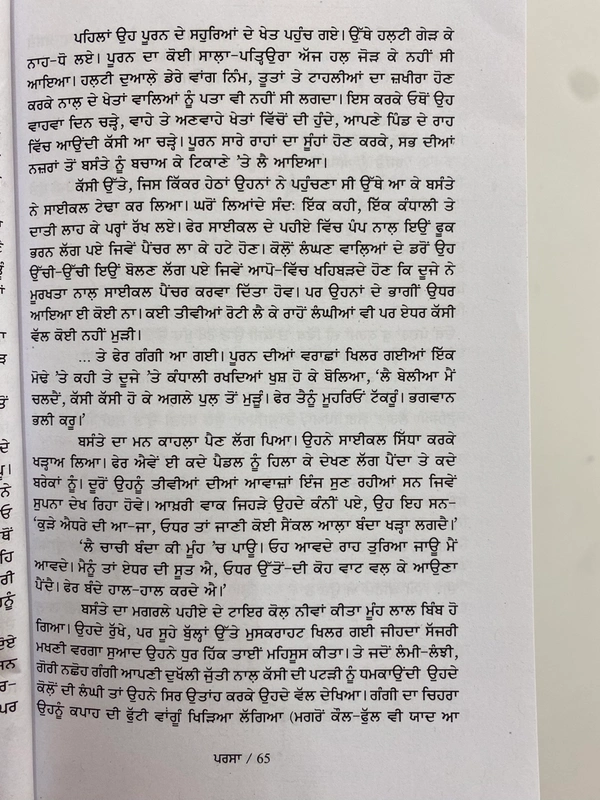 ਪਹਿਲਾਂ ਉਹ ਪੂਰਨ ਦੇ ਸਹੁਰਿਆਂ ਦੇ ਖੇਤ ਪਹੁੰਚ ਗਏ। ਉੱਥੇ ਹਲ਼ਟੀ ਗੇੜ ਕੇ
ਨਾਹ-ਧੋ ਲਏ। ਪੂਰਨ ਦਾ ਕੋਈ ਸਾਲ਼ਾ-ਪਤ੍ਰਿਉਰਾ ਅੱਜ ਹਲ਼ ਜੋੜ ਕੇ ਨਹੀਂ ਸੀ
ਆਇਆ। ਹਲ਼ਟੀ ਦੁਆਲ਼ੇ ਡੇਰੇ ਵਾਂਗ ਨਿੰਮ, ਤੂਤਾਂ ਤੇ ਟਾਹਲੀਆਂ ਦਾ ਜ਼ਖੀਰਾ ਹੋਣ
ਕਰਕੇ ਨਾਲ਼ ਦੇ ਖੇਤਾਂ ਵਾਲਿਆਂ ਨੂੰ ਪਤਾ ਵੀ ਨਹੀਂ ਸੀ ਲਗਦਾ। ਇਸ ਕਰਕੇ ਓਥੋਂ ਉਹ
ਵਾਹਵਾ ਦਿਨ ਚੜ੍ਹੇ, ਵਾਹੇ ਤੇ ਅਣਵਾਹੇ ਖੇਤਾਂ ਵਿੱਚੋਂ ਦੀ ਹੁੰਦੇ, ਆਪਣੇ ਪਿੰਡ ਦੇ ਰਾਹ
ਵਿੱਚ ਆਉਂਦੀ ਕੱਸੀ ਆ ਚੜ੍ਹੇ। ਪੂਰਨ ਸਾਰੇ ਰਾਹਾਂ ਦਾ ਸੂੰਹਾਂ ਹੋਣ ਕਰਕੇ, ਸਭ ਦੀਆਂ
ਨਜ਼ਰਾਂ ਤੋਂ ਬਸੰਤੇ ਨੂੰ ਬਚਾਅ ਕੇ ਟਿਕਾਣੇ 'ਤੇ ਲੈ ਆਇਆ।
ਕੱਸੀ ਉੱਤੇ, ਜਿਸ ਕਿੱਕਰ ਹੇਠਾਂ ਉਹਨਾਂ ਨੇ ਪਹੁੰਚਣਾ ਸੀ ਉੱਥੇ ਆ ਕੇ ਬਸੰਤੇ
ਨੇ ਸਾਈਕਲ ਟੇਢਾ ਕਰ ਲਿਆ। ਘਰੋਂ ਲਿਆਂਦੇ ਸੰਦ: ਇੱਕ ਕਹੀ, ਇੱਕ ਕੰਧਾਲੀ ਤੇ
ਦਾਤੀ ਲਾਹ ਕੇ ਪਰ੍ਹਾਂ ਰੱਖ ਲਏ। ਫੇਰ ਸਾਈਕਲ ਦੇ ਪਹੀਏ ਵਿੱਚ ਪੰਪ ਨਾਲ਼ ਇਉਂ ਫੂਕ
ਭਰਨ ਲੱਗ ਪਏ ਜਿਵੇਂ ਪੈਂਚਰ ਲਾ ਕੇ ਹਟੇ ਹੋਣ। ਕੋਲ਼ੋਂ ਲੰਘਣ ਵਾਲਿਆਂ ਦੇ ਡਰੋਂ ਉਹ
ਉੱਚੀ-ਉੱਚੀ ਇਉਂ ਬੋਲਣ ਲੱਗ ਪਏ ਜਿਵੇਂ ਆਪੋ-ਵਿੱਚ ਖਹਿਬੜਦੇ ਹੋਣ ਕਿ ਦੂਜੇ ਨੇ
ਮੂਰਖਤਾ ਨਾਲ਼ ਸਾਈਕਲ ਪੈਂਚਰ ਕਰਵਾ ਦਿੱਤਾ ਹੋਵ। ਪਰ ਉਹਨਾਂ ਦੇ ਭਾਗੀਂ ਉਧਰ
ਆਇਆ ਈ ਕੋਈ ਨਾ। ਕਈ ਤੀਵੀਆਂ ਰੋਟੀ ਲੈ ਕੇ ਰਾਹੋਂ ਲੰਘੀਆਂ ਵੀ ਪਰ ਏਧਰ ਕੱਸੀ
ਵੱਲ ਕੋਈ ਨਹੀਂ ਮੁੜੀ।
... ਤੇ ਫੇਰ ਗੰਗੀ ਆ ਗਈ। ਪੂਰਨ ਦੀਆਂ ਵਰਾਛਾਂ ਖਿਲਰ ਗਈਆਂ ਇੱਕ
ਮੋਢੇ 'ਤੇ ਕਹੀ ਤੇ ਦੂਜੇ 'ਤੇ ਕੰਧਾਲੀ ਰਖਦਿਆਂ ਖ਼ੁਸ਼ ਹੋ ਕੇ ਬੋਲਿਆ, 'ਲੈ ਬੇਲੀਆ ਮੈਂ
ਚਲਦੈਂ, ਕੱਸੀ ਕੱਸੀ ਹੋ ਕੇ ਅਗਲੇ ਪੁਲ਼ ਤੋਂ ਮੁੜੂੰ। ਫੇਰ ਤੈਨੂੰ ਮੂਹਰਿਓਂ ਟੱਕਰੂੰ। ਭਗਵਾਨ
ਭਲੀ ਕਰੂ।'
ਬਸੰਤੇ ਦਾ ਮਨ ਕਾਹਲ਼ਾ ਪੈਣ ਲੱਗ ਪਿਆ। ਉਹਨੇ ਸਾਈਕਲ ਸਿੱਧਾ ਕਰਕੇ
ਖੜ੍ਹਾਅ ਲਿਆ। ਫੇਰ ਐਵੇਂ ਈ ਕਦੇ ਪੈਡਲ ਨੂੰ ਹਿਲਾ ਕੇ ਦੇਖਣ ਲੱਗ ਪੈਂਦਾ ਤੇ ਕਦੇ
ਬਰੇਕਾਂ ਨੂੰ। ਦੂਰੋਂ ਉਹਨੂੰ ਤੀਵੀਆਂ ਦੀਆਂ ਆਵਾਜ਼ਾਂ ਇੰਜ ਸੁਣ ਰਹੀਆਂ ਸਨ ਜਿਵੇਂ
ਸੁਪਨਾ ਦੇਖ ਰਿਹਾ ਹੋਵੇ। ਆਖ਼ਰੀ ਵਾਕ ਜਿਹੜੇ ਉਹਦੇ ਕੰਨੀਂ ਪਏ, ਉਹ ਇਹ ਸਨ-
'ਕੁੜੇ ਐਧਰੇ ਦੀ ਆ-ਜਾ, ਓਧਰ ਤਾਂ ਜਾਣੀ ਕੋਈ ਸੈਂਕਲ ਆਲ਼ਾ ਬੰਦਾ ਖੜ੍ਹਾ ਲਗਦੈ।'
'ਲੈ ਚਾਚੀ ਬੰਦਾ ਕੀ ਮੂੰਹ 'ਚ ਪਾਊ। ਓਹ ਆਵਦੇ ਰਾਹ ਤੁਰਿਆ ਜਾਊ ਮੈਂ
ਆਵਦੇ। ਮੈਨੂੰ ਤਾਂ ਏਧਰ ਦੀ ਸੂਤ ਐ, ਓਧਰ ਉੱਤੋਂ-ਦੀ ਕੋਹ ਵਾਟ ਵਲ਼ ਕੇ ਆਉਣਾ
ਪੈਂਦੈ। ਫੇਰ ਬੰਦੇ ਹਾਲ-ਹਾਲ ਕਰਦੇ ਐ।'
ਬਸੰਤੇ ਦਾ ਮਗਰਲੇ ਪਹੀਏ ਦੇ ਟਾਇਰ ਕੋਲ਼ ਨੀਵਾਂ ਕੀਤਾ ਮੂੰਹ ਲਾਲ ਬਿੰਬ ਹੋ
ਗਿਆ। ਉਹਦੇ ਰੁੱਖੇ, ਪਰ ਸੂਹੇ ਬੁੱਲ੍ਹਾਂ ਉੱਤੇ ਮੁਸਕਰਾਹਟ ਖਿਲਰ ਗਈ ਜੀਹਦਾ ਸੱਜਰੀ
ਮਖਣੀ ਵਰਗਾ ਸੁਆਦ ਉਹਨੇ ਧੁਰ ਹਿੱਕ ਤਾਈਂ ਮਹਿਸੂਸ ਕੀਤਾ। ਤੇ ਜਦੋਂ ਲੰਮੀ-ਲੰਝੀ,
ਗੋਰੀ ਨਛੋਹ ਗੰਗੀ ਆਪਣੀ ਦੁਖੱਲੀ ਜੁੱਤੀ ਨਾਲ਼ ਕੱਸੀ ਦੀ ਪਟੜੀ ਨੂੰ ਧਮਕਾਉਂਦੀ ਉਹਦੇ
ਕੋਲ਼ੋਂ ਦੀ ਲੰਘੀ ਤਾਂ ਉਹਨੇ ਸਿਰ ਉਤਾਂਹ ਕਰਕੇ ਉਹਦੇ ਵੱਲ ਦੇਖਿਆ। ਗੰਗੀ ਦਾ ਚਿਹਰਾ
ਉਹਨੂੰ ਕਪਾਹ ਦੀ ਫੁੱਟੀ ਵਾਂਗੂੰ ਖਿੜਿਆ ਲੱਗਿਆ (ਮਗਰੋਂ ਕੌਲ-ਫੁੱਲ ਵੀ ਯਾਦ ਆ
ਪਰਸਾ / 65